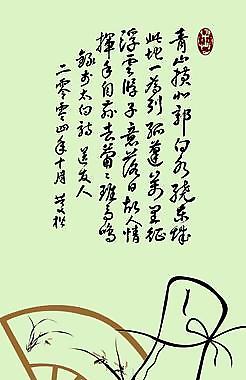 青山横北郭白水绕东城
此地一为别孤蓬万里征
浮云游子意落日故人情
挥手自兹去萧萧班马鸣
录李太白诗 送友人
二零零四年十月